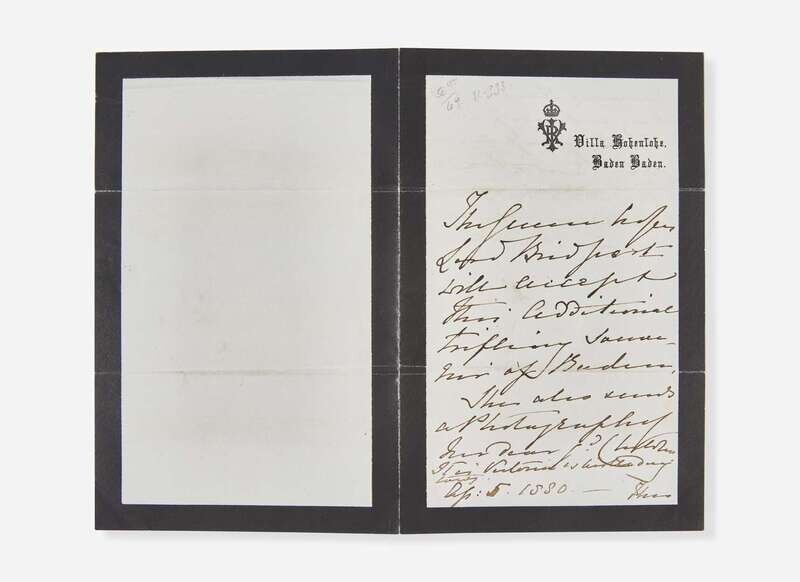 Villa Hohenlohe,
Baden Baden.
The Queen hopes
Lord Bridport
will accept
this additional
trifling souve-
nir of Baden.
She also sends
a Photograph of
her dear
Victoria is
Ap: 5. 1880 —